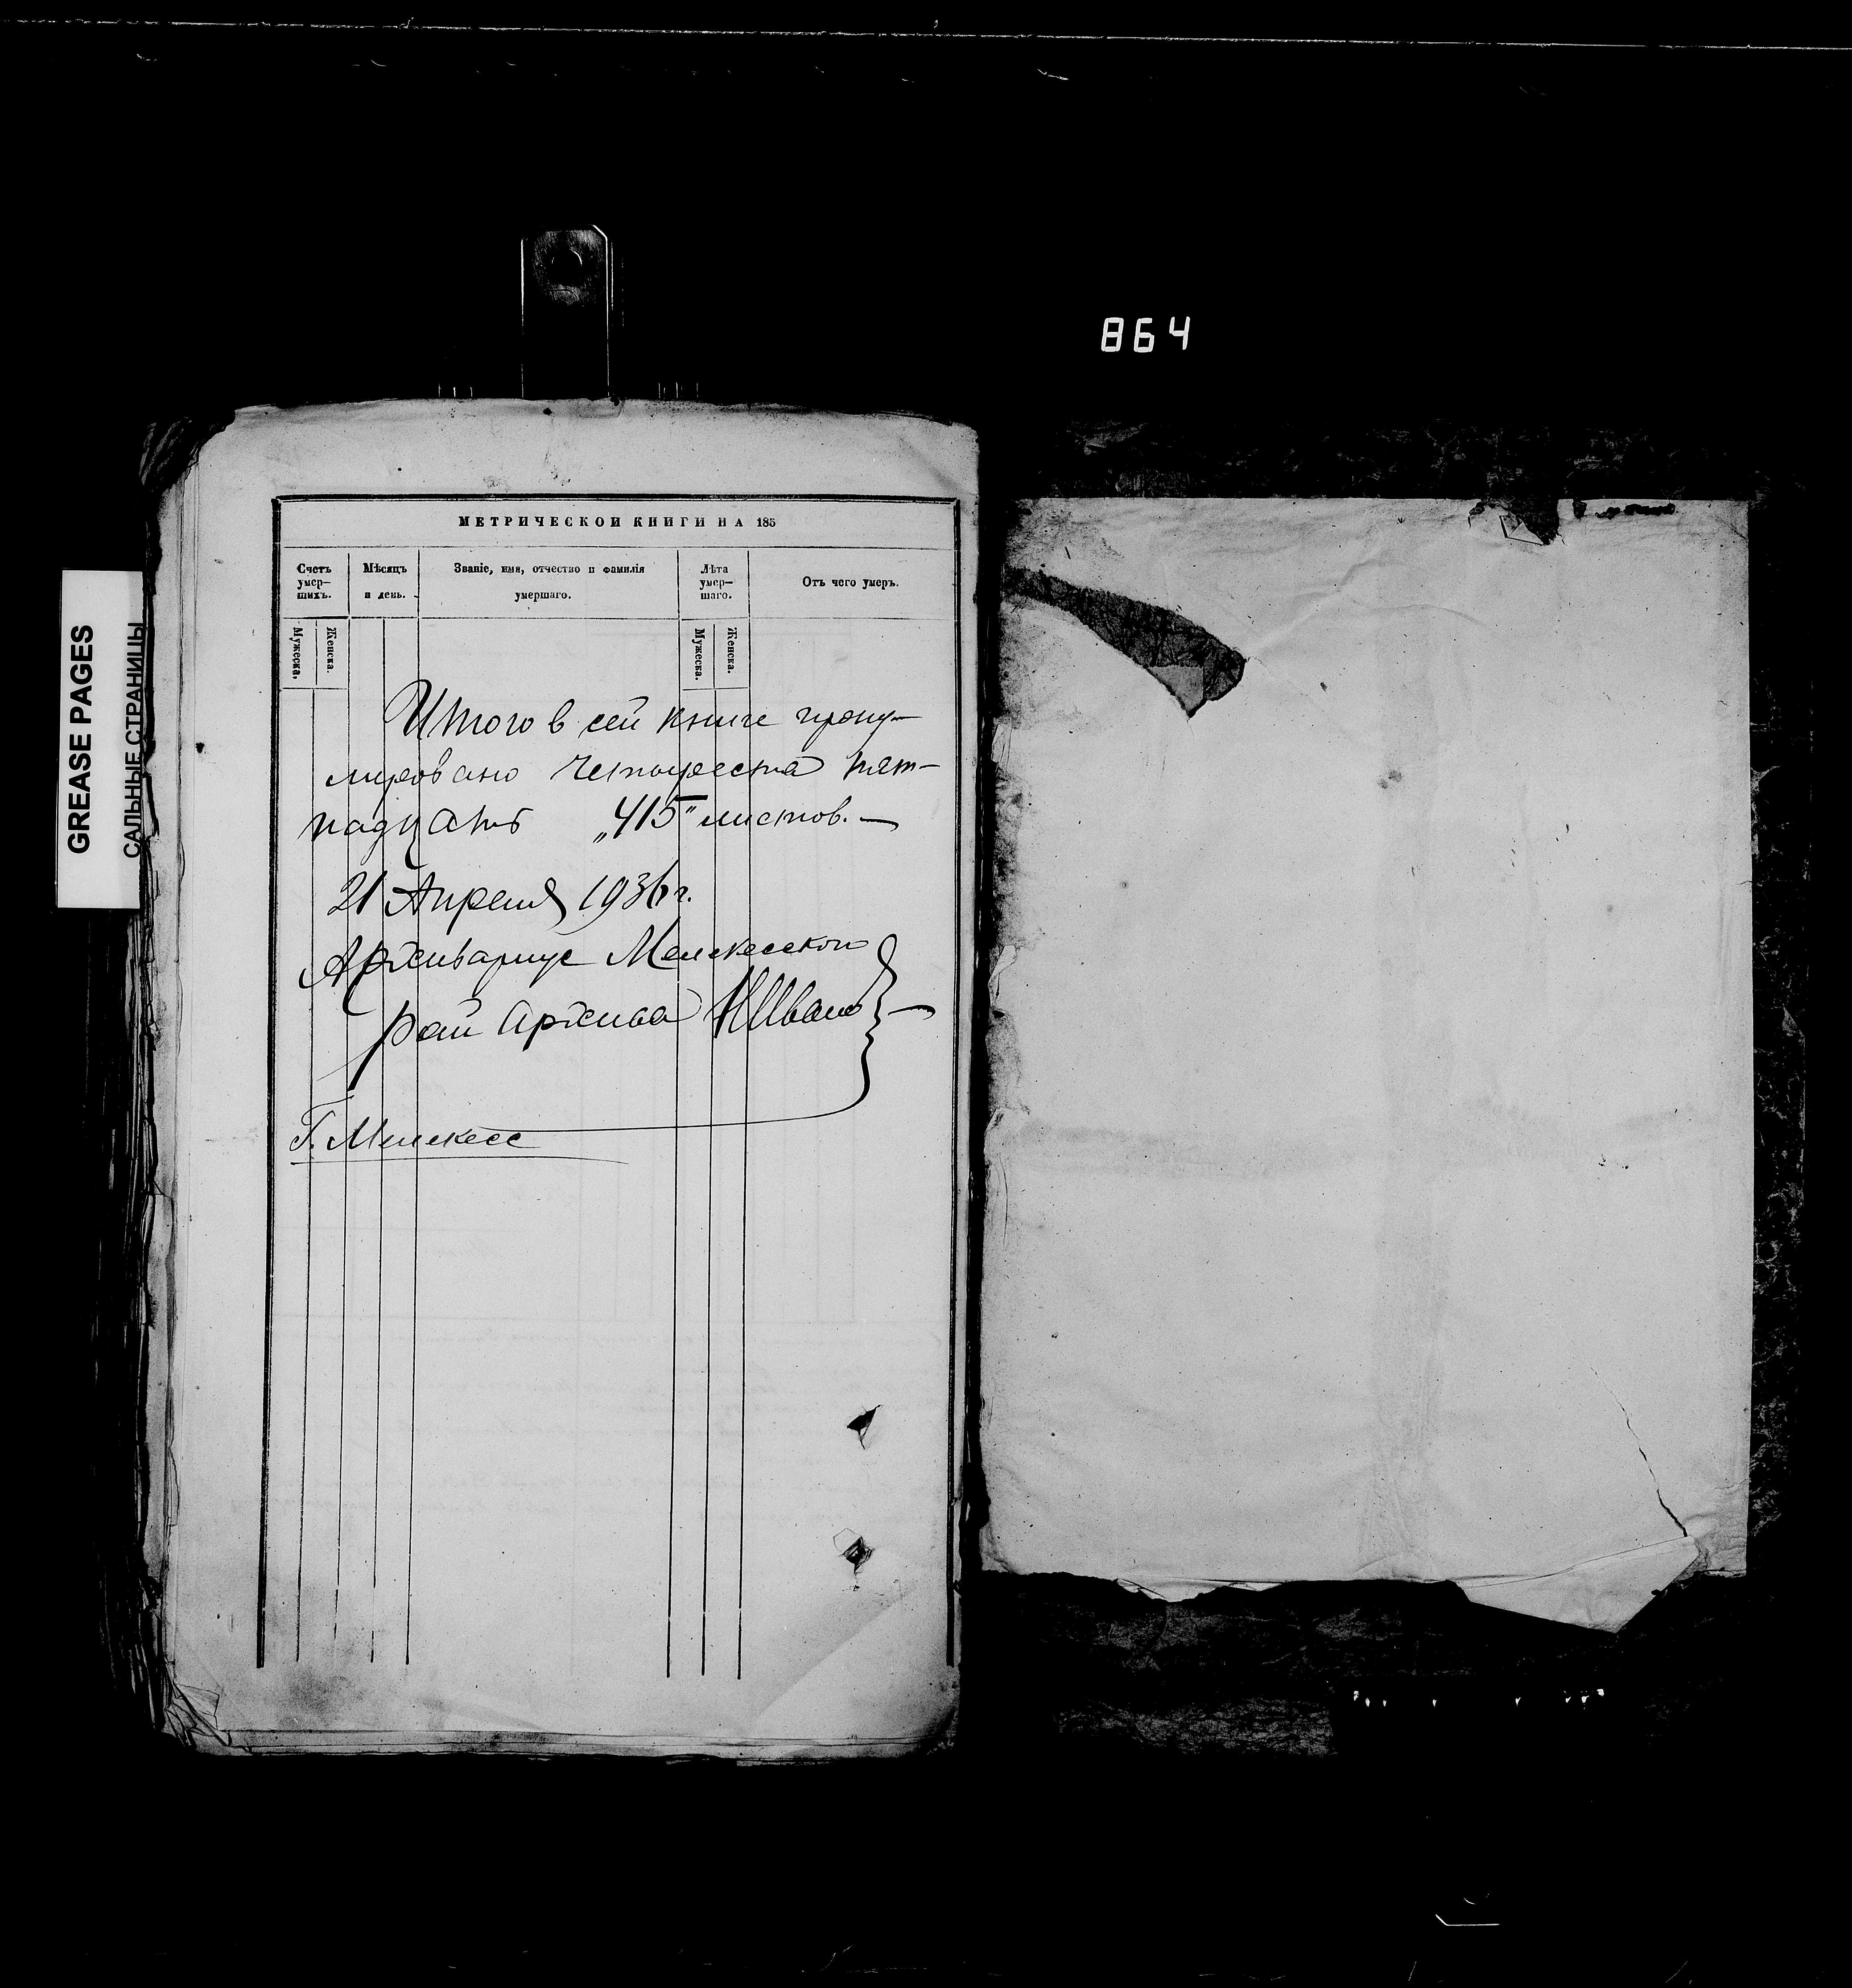 864
GREASE PAGES
САЛЬНЫЕ СТРАНИЦЫ
МЕТРИЧЕСКОЙ КНИГИ НА 185
Счетъ умер-
шихъ.
Мѣсяцъ
и день.
Званіе, имя, отчество и фамилія
умершаго.
Лѣта
умер-
шаго.
Отъ чего умеръ.
Мужеска.
Женска.
Мужеска.
Женска.
Итого в сей книге прону-
мировано четыреста пят-
надцать „415" листов. —
21 Апреля 1936 г.
Архивариус Мелекесской
рай архива
Г. Мелекесс